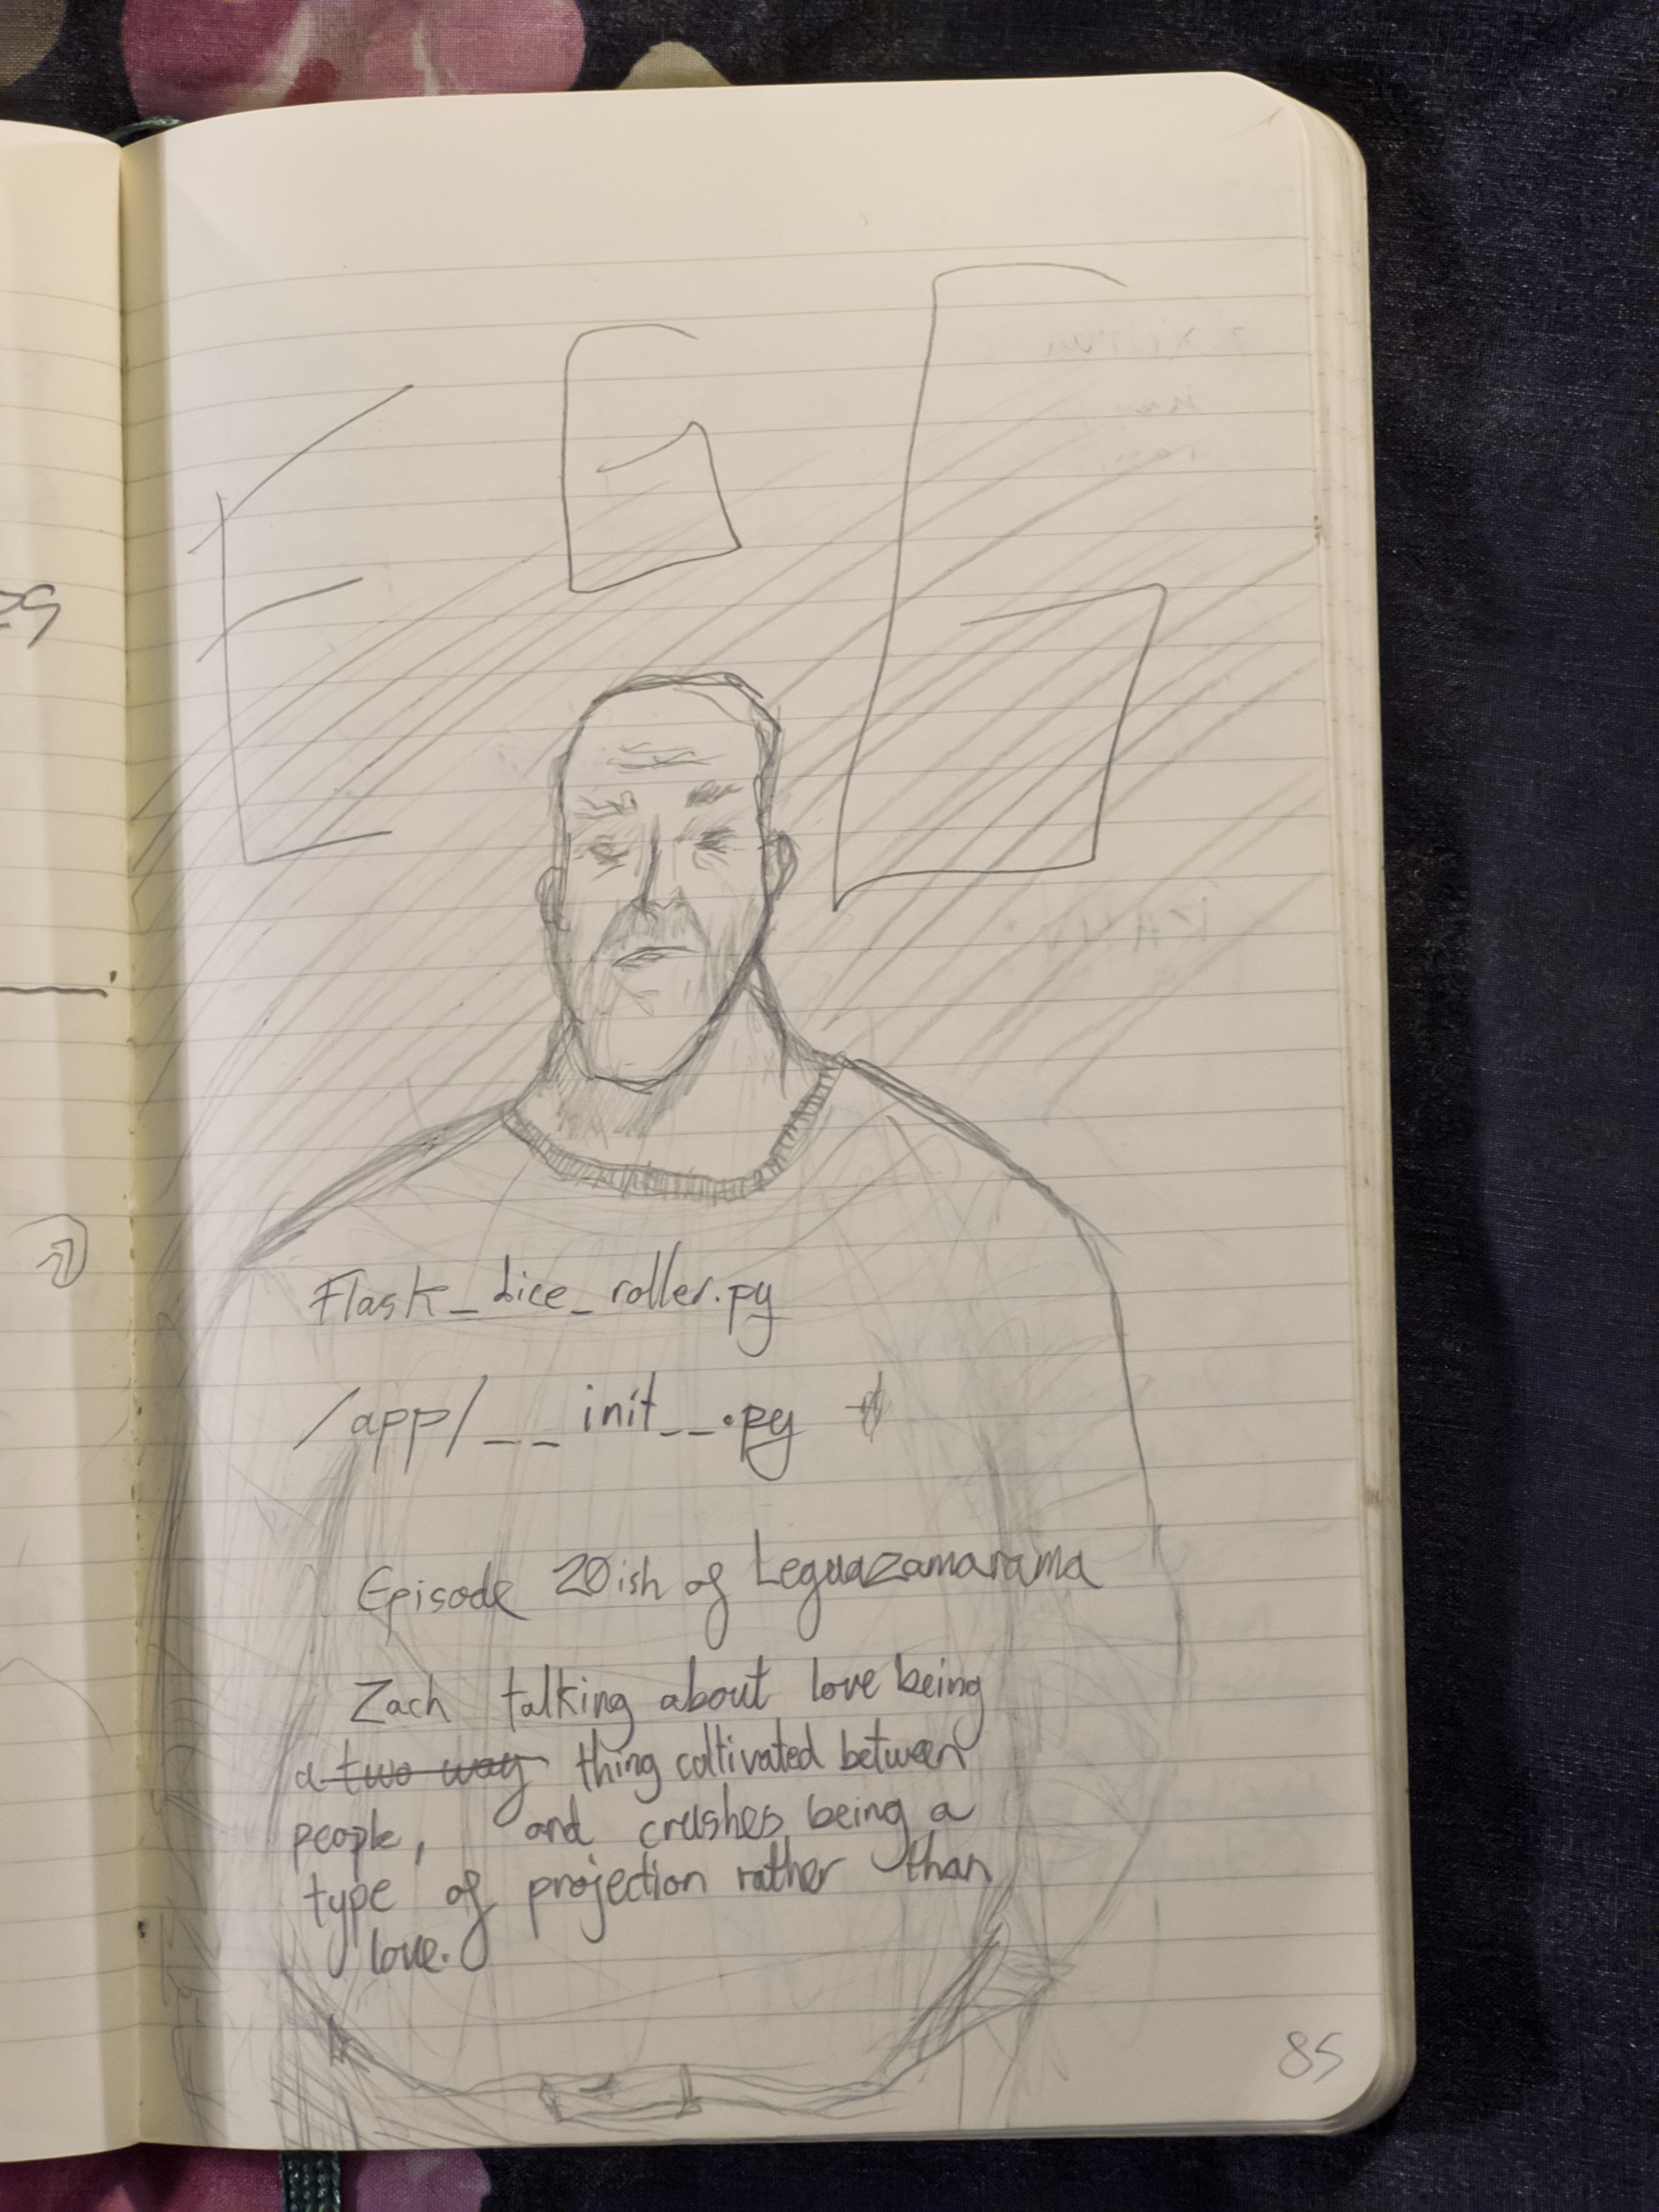 EGG
Flask_dice_roller.py
/app/__init__.py
Episode 20ish of Leguazamarama
Zach talking about love being
a two way thing coltivated between
people, and crushes being a
type of projection rather than
love.
85